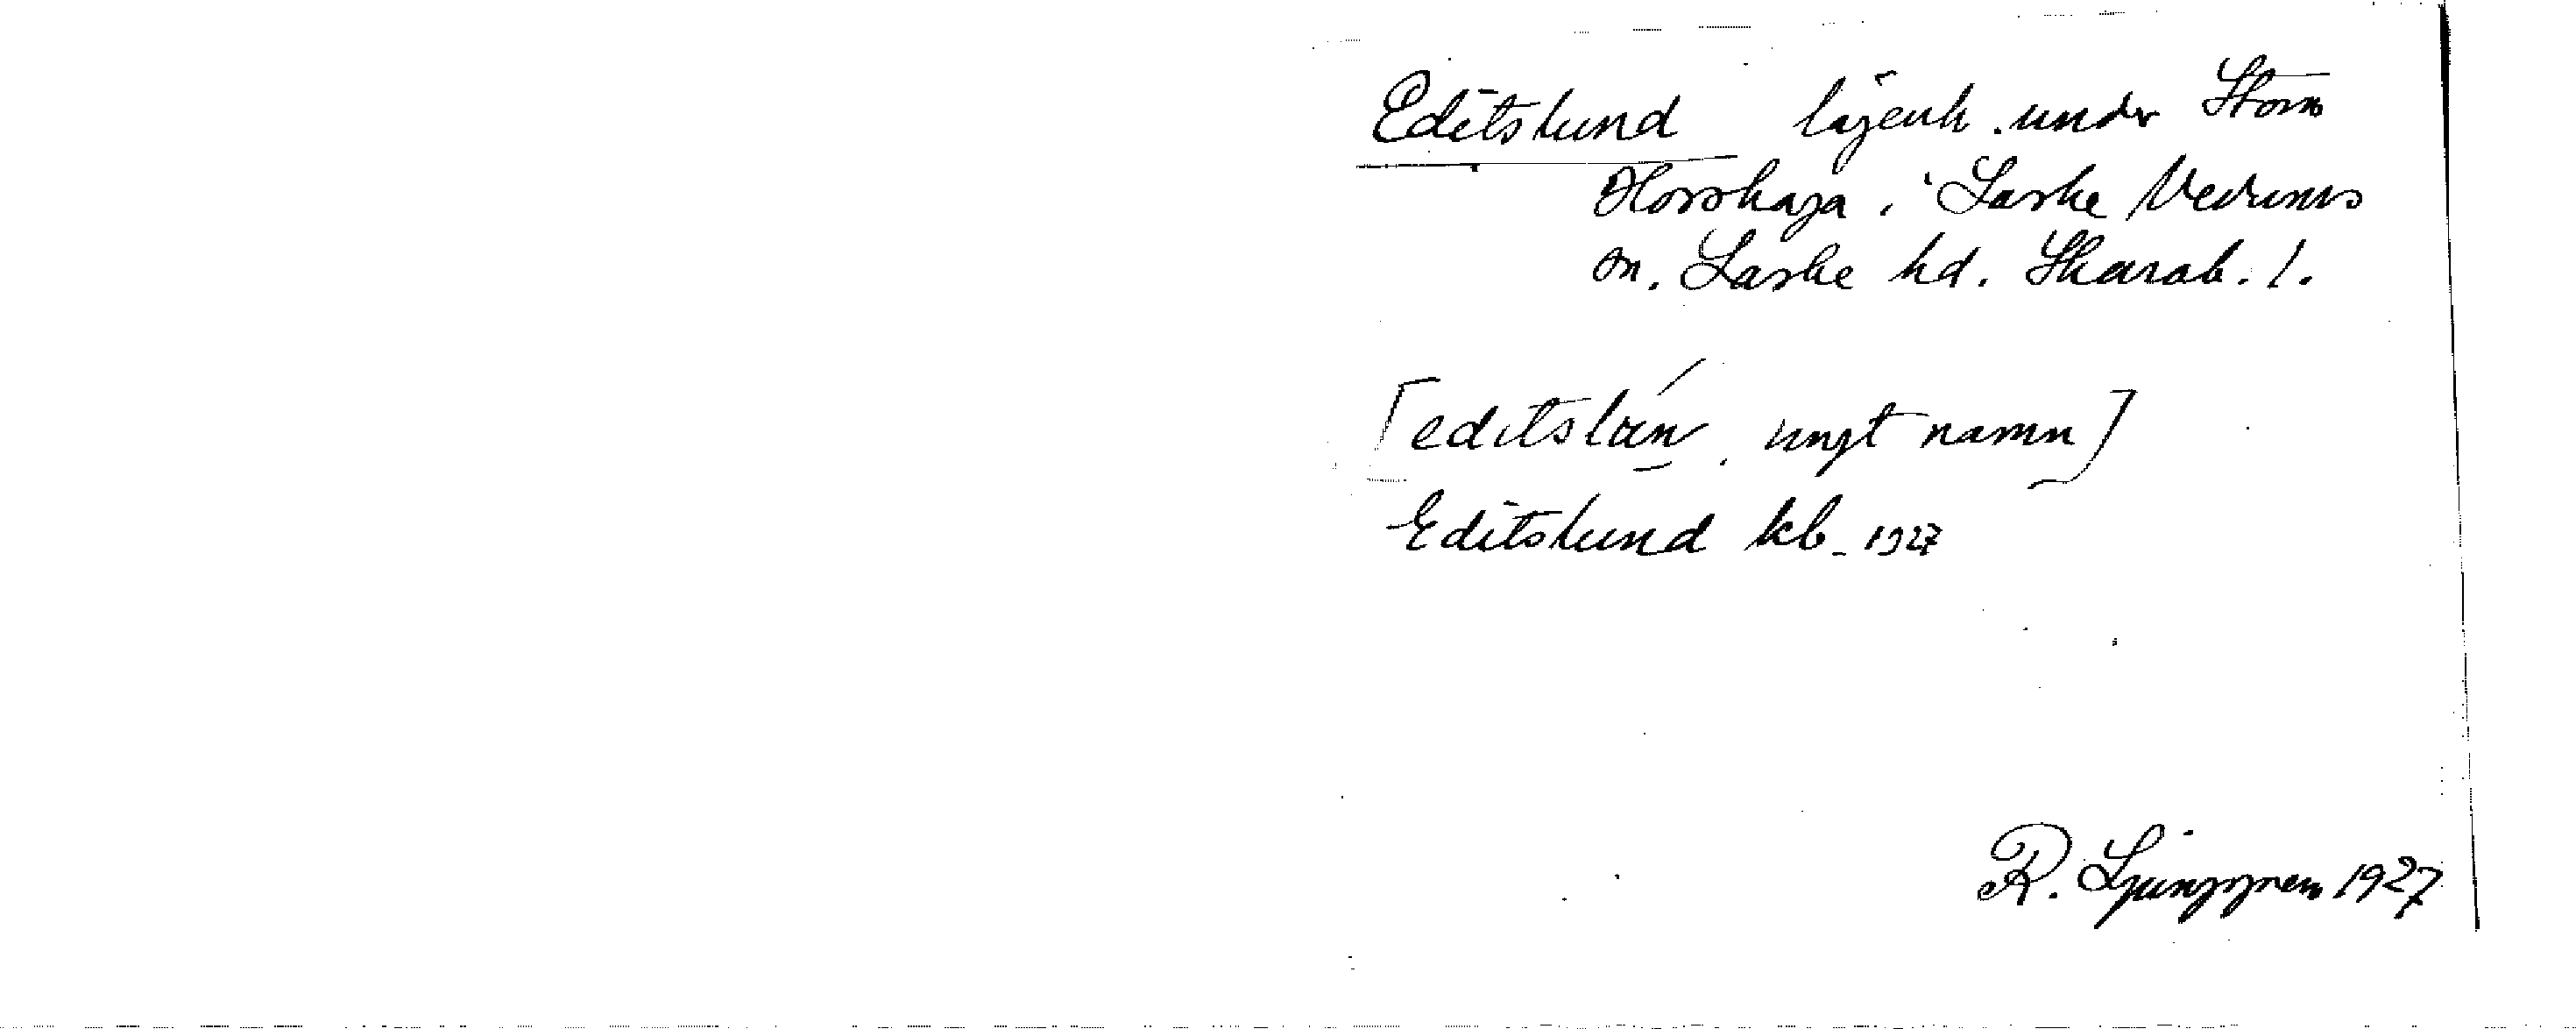 Editslund lägenh. under Stom
Horshaga, i Laske Vedums
sn. Laske hd. Skarab. l.
[editslún, ungt namn]
Editslund kb. 1927
R. Ljunggren 1927